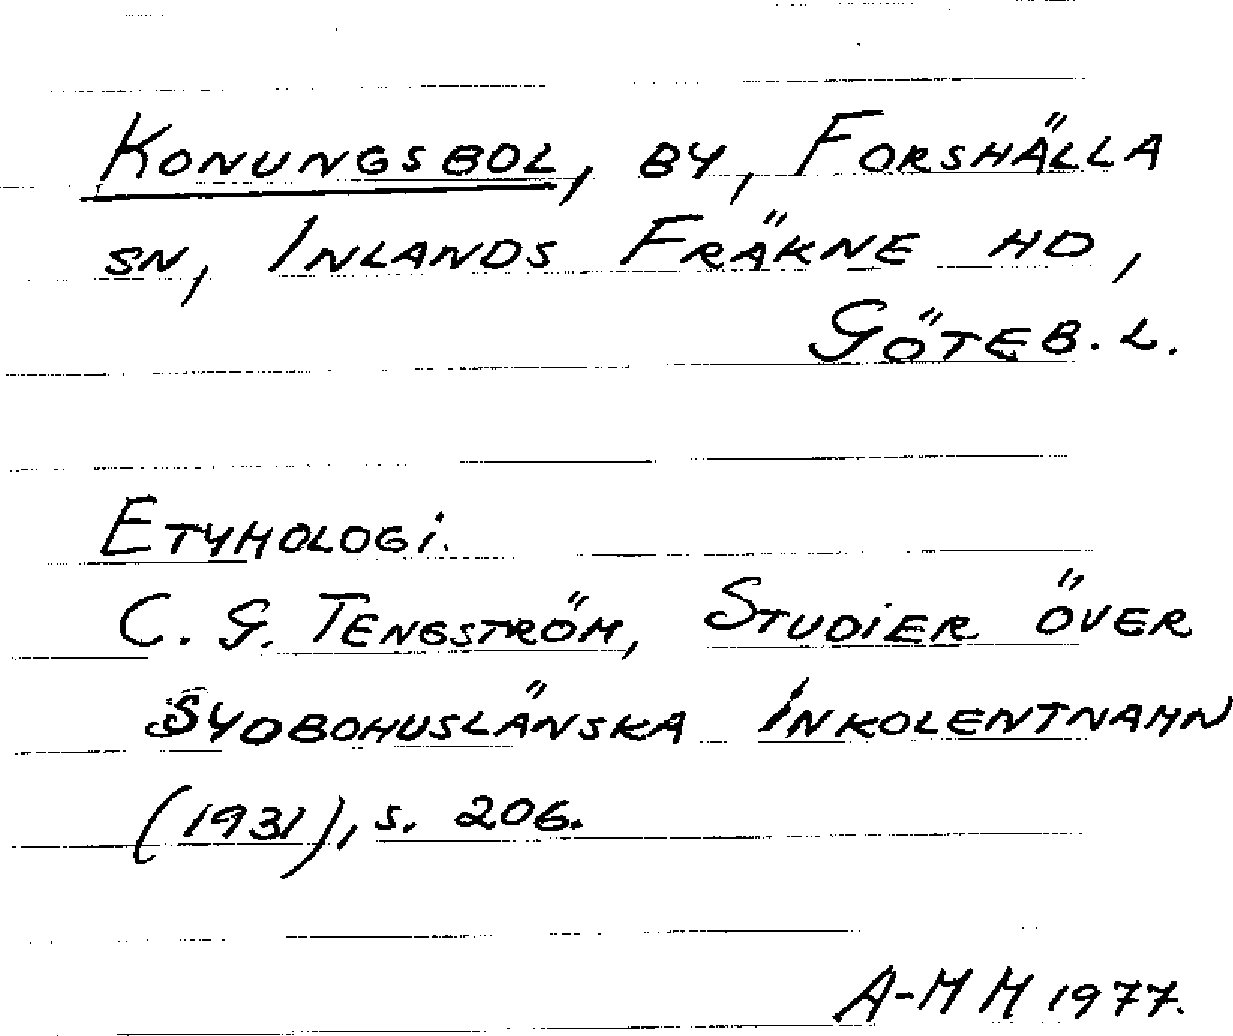 Konungsbol, by, Forshälla
sn, Inlands Fräkne hd,
Göteb. l.
Etymologi.
C. G. Tengström, Studier över
sydbohuslänska inkolentnamn
(1931), s. 206.
A-M M 1977.